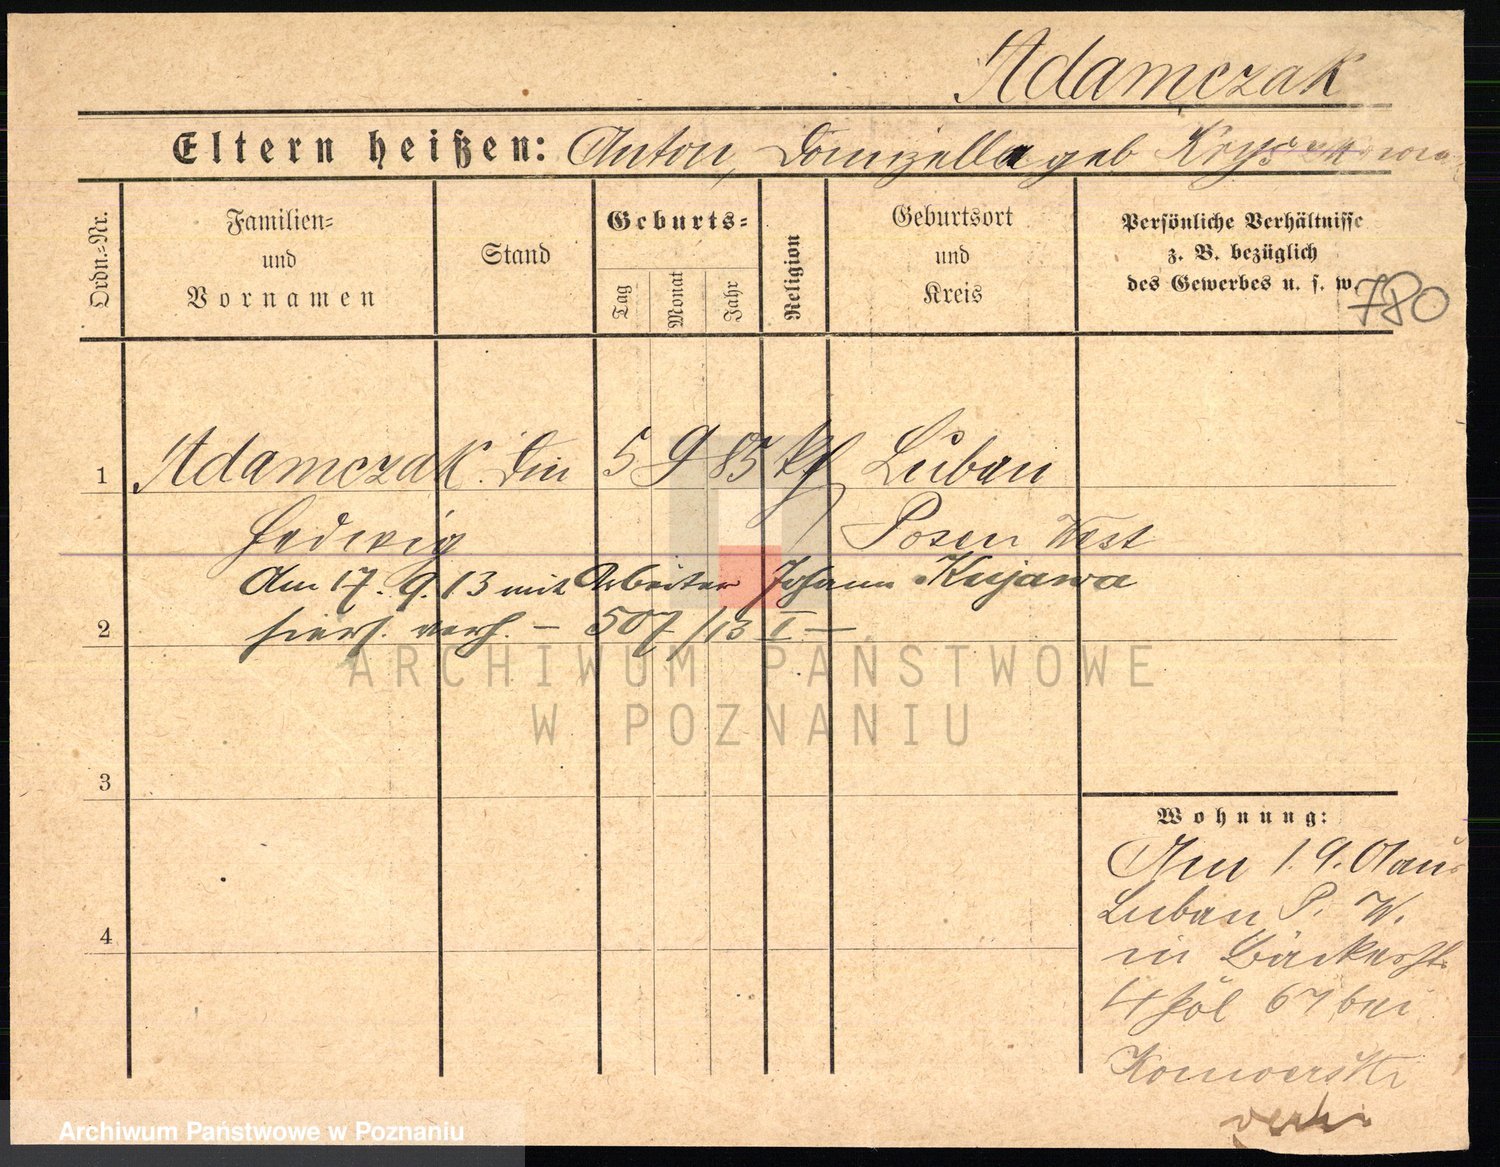 Adamczak
Eltern heißen: Anton, Domizella geb
Ordn.-Nr.
Familien-
und
Vornamen
Stand
Geburts-
Tag
Monat
Jahr
Religion
Geburtsort
und
Kreis
Persönliche Verhältnisse
z. B. bezüglich
des Gewerbes u. s. w.
780
1 Adamczak Din 5 9 85 kf Luban
Hedwig Posen West
Am 17.9.13 mit Arbeiter Johann Kujawa
2 hiers. verh. – 507/13 I –
3
4
Wohnung:
Am 1.9. 01 aus
Luban P. W.
in Bäckerstr.
4 Pol 67 bei
Konwerski
verh.
ARCHIWUM PAŃSTWOWE
W POZNANIU
Archiwum Państwowe w Poznaniu